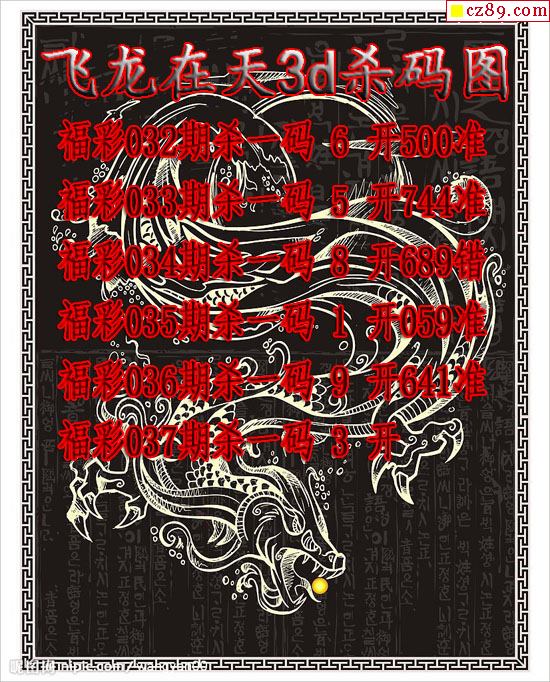 cz89.com
飞龙在天3d杀码图
福彩032期杀一码 6 开500准
福彩033期杀一码 5 开744准
福彩034期杀一码 8 开689错
福彩035期杀一码 1 开059准
福彩036期杀一码 9 开641准
福彩037期杀一码 3 开